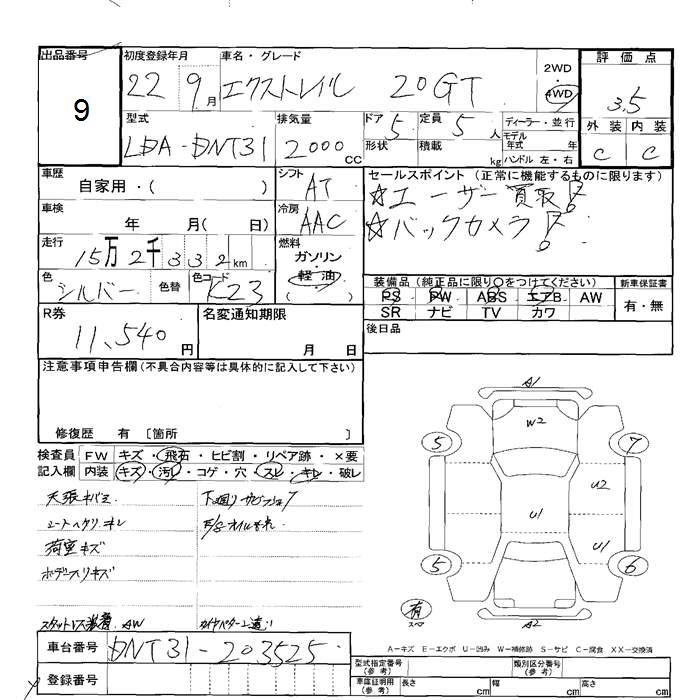 出品番号 初度登録年月 車名・グレード 評価点
9 22 9月 エクストレイル 20GT 2WD 4WD 3.5
型式 排気量 ドア 5 定員 5人 ディーラー・並行 外装 内装
LDA-DNT31 2000CC 形状 積載 kg モデル年式 年 ハンドル 左・右 C C
車歴 自家用・( ) シフト AT セールスポイント (正常に機能するものに限ります)
☆ユーザー買取
車検 年 月( 日) 冷房 AAC ☆バックカメラ
走行 15万2千332km 燃料 ガソリン・軽油・( )
色 シルバー 色替 色コード K23
装備品 (純正品に限り○をつけてください) 新車保証書
PS PW ABS エアB AW 有・無
SR ナビ TV カワ
R券 11,540円 名変通知期限 月 日 後日品
注意事項申告欄 (不具合内容等は具体的に記入して下さい)
修復歴 有 〔箇所 〕
検査員記入欄 FW キズ・飛石・ヒビ割・リペア跡・×要
内装 キズ・汚レ・コゲ・穴・スレ・キレ・破レ
天張キバミ 下廻りサビ
シートヘタリ・キレ オイルもれ
荷室キズ
ボデー入リキズ
スタットレス装着 AW タイヤパターン違い
A1
W2
5 7
U2
U1
U1
5 6
有
A2
A-キズ E-エクボ U-凹み W-補修跡 S-サビ C-腐食 XX-交換済
車台番号 DNT31-203525
登録番号
型式指定番号(参考) 類別区分番号(参考)
車庫証明用(参考) 長さ cm 幅 cm 高さ cm